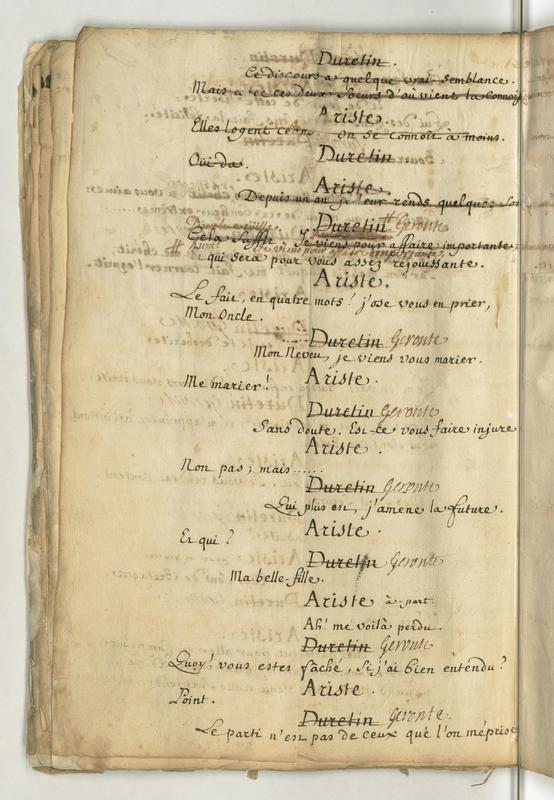 Duretin.
Ce discours a quelque vrai-semblance.
Mais avec ces deux Soeurs d'où vient la connoi
Ariste.
Elles logent ceans. On se connoît à moins.
Duretin
Oüi-da.
Ariste.
Depuis un an je leur rends quelques
Duretin Geronte
Cela suffit. Je viens pour affaire importante,
Et qui sera pour vous assez rejoüissante.
Ariste.
Le fait, en quatre mots! j'ose vous en prier,
Mon Oncle.
Duretin Geronte
Mon Neveu, je viens vous marier.
Ariste.
Me marier!
Duretin Geronte
Sans doute. Est-ce vous faire injure
Ariste.
Non pas; mais......
Duretin Geronte
Qui plus est, j'amene la future.
Ariste.
Et qui?
Duretin Geronte
Ma belle-fille.
Ariste à part
Ah! me voilà perdu.
Duretin Geronte
Quoy! vous estes fâché, si j'ai bien entendu?
Ariste.
Point.
Duretin Geronte.
Le parti n'est pas de ceux que l'on méprise